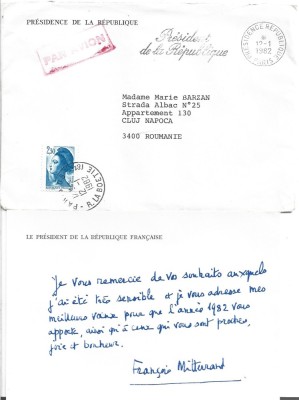 PRÉSIDENCE DE LA RÉPUBLIQUE
PAR AVION
Président
de la République
PRÉSIDENCE RÉPUBLIQUE
12-1
1982
PARIS
Madame Marie BARZAN
Strada Albac N°25
Appartement 130
CLUJ NAPOCA
3400 ROUMANIE
2,30
R. LA BOETIE
1982
LE PRÉSIDENT DE LA RÉPUBLIQUE FRANÇAISE
Je vous remercie de vos souhaits auxquels
j'ai été très sensible et je vous adresse mes
meilleurs vœux pour que l'année 1982 vous
apporte, ainsi qu'à ceux qui vous sont proches,
joie et bonheur.
François Mitterrand